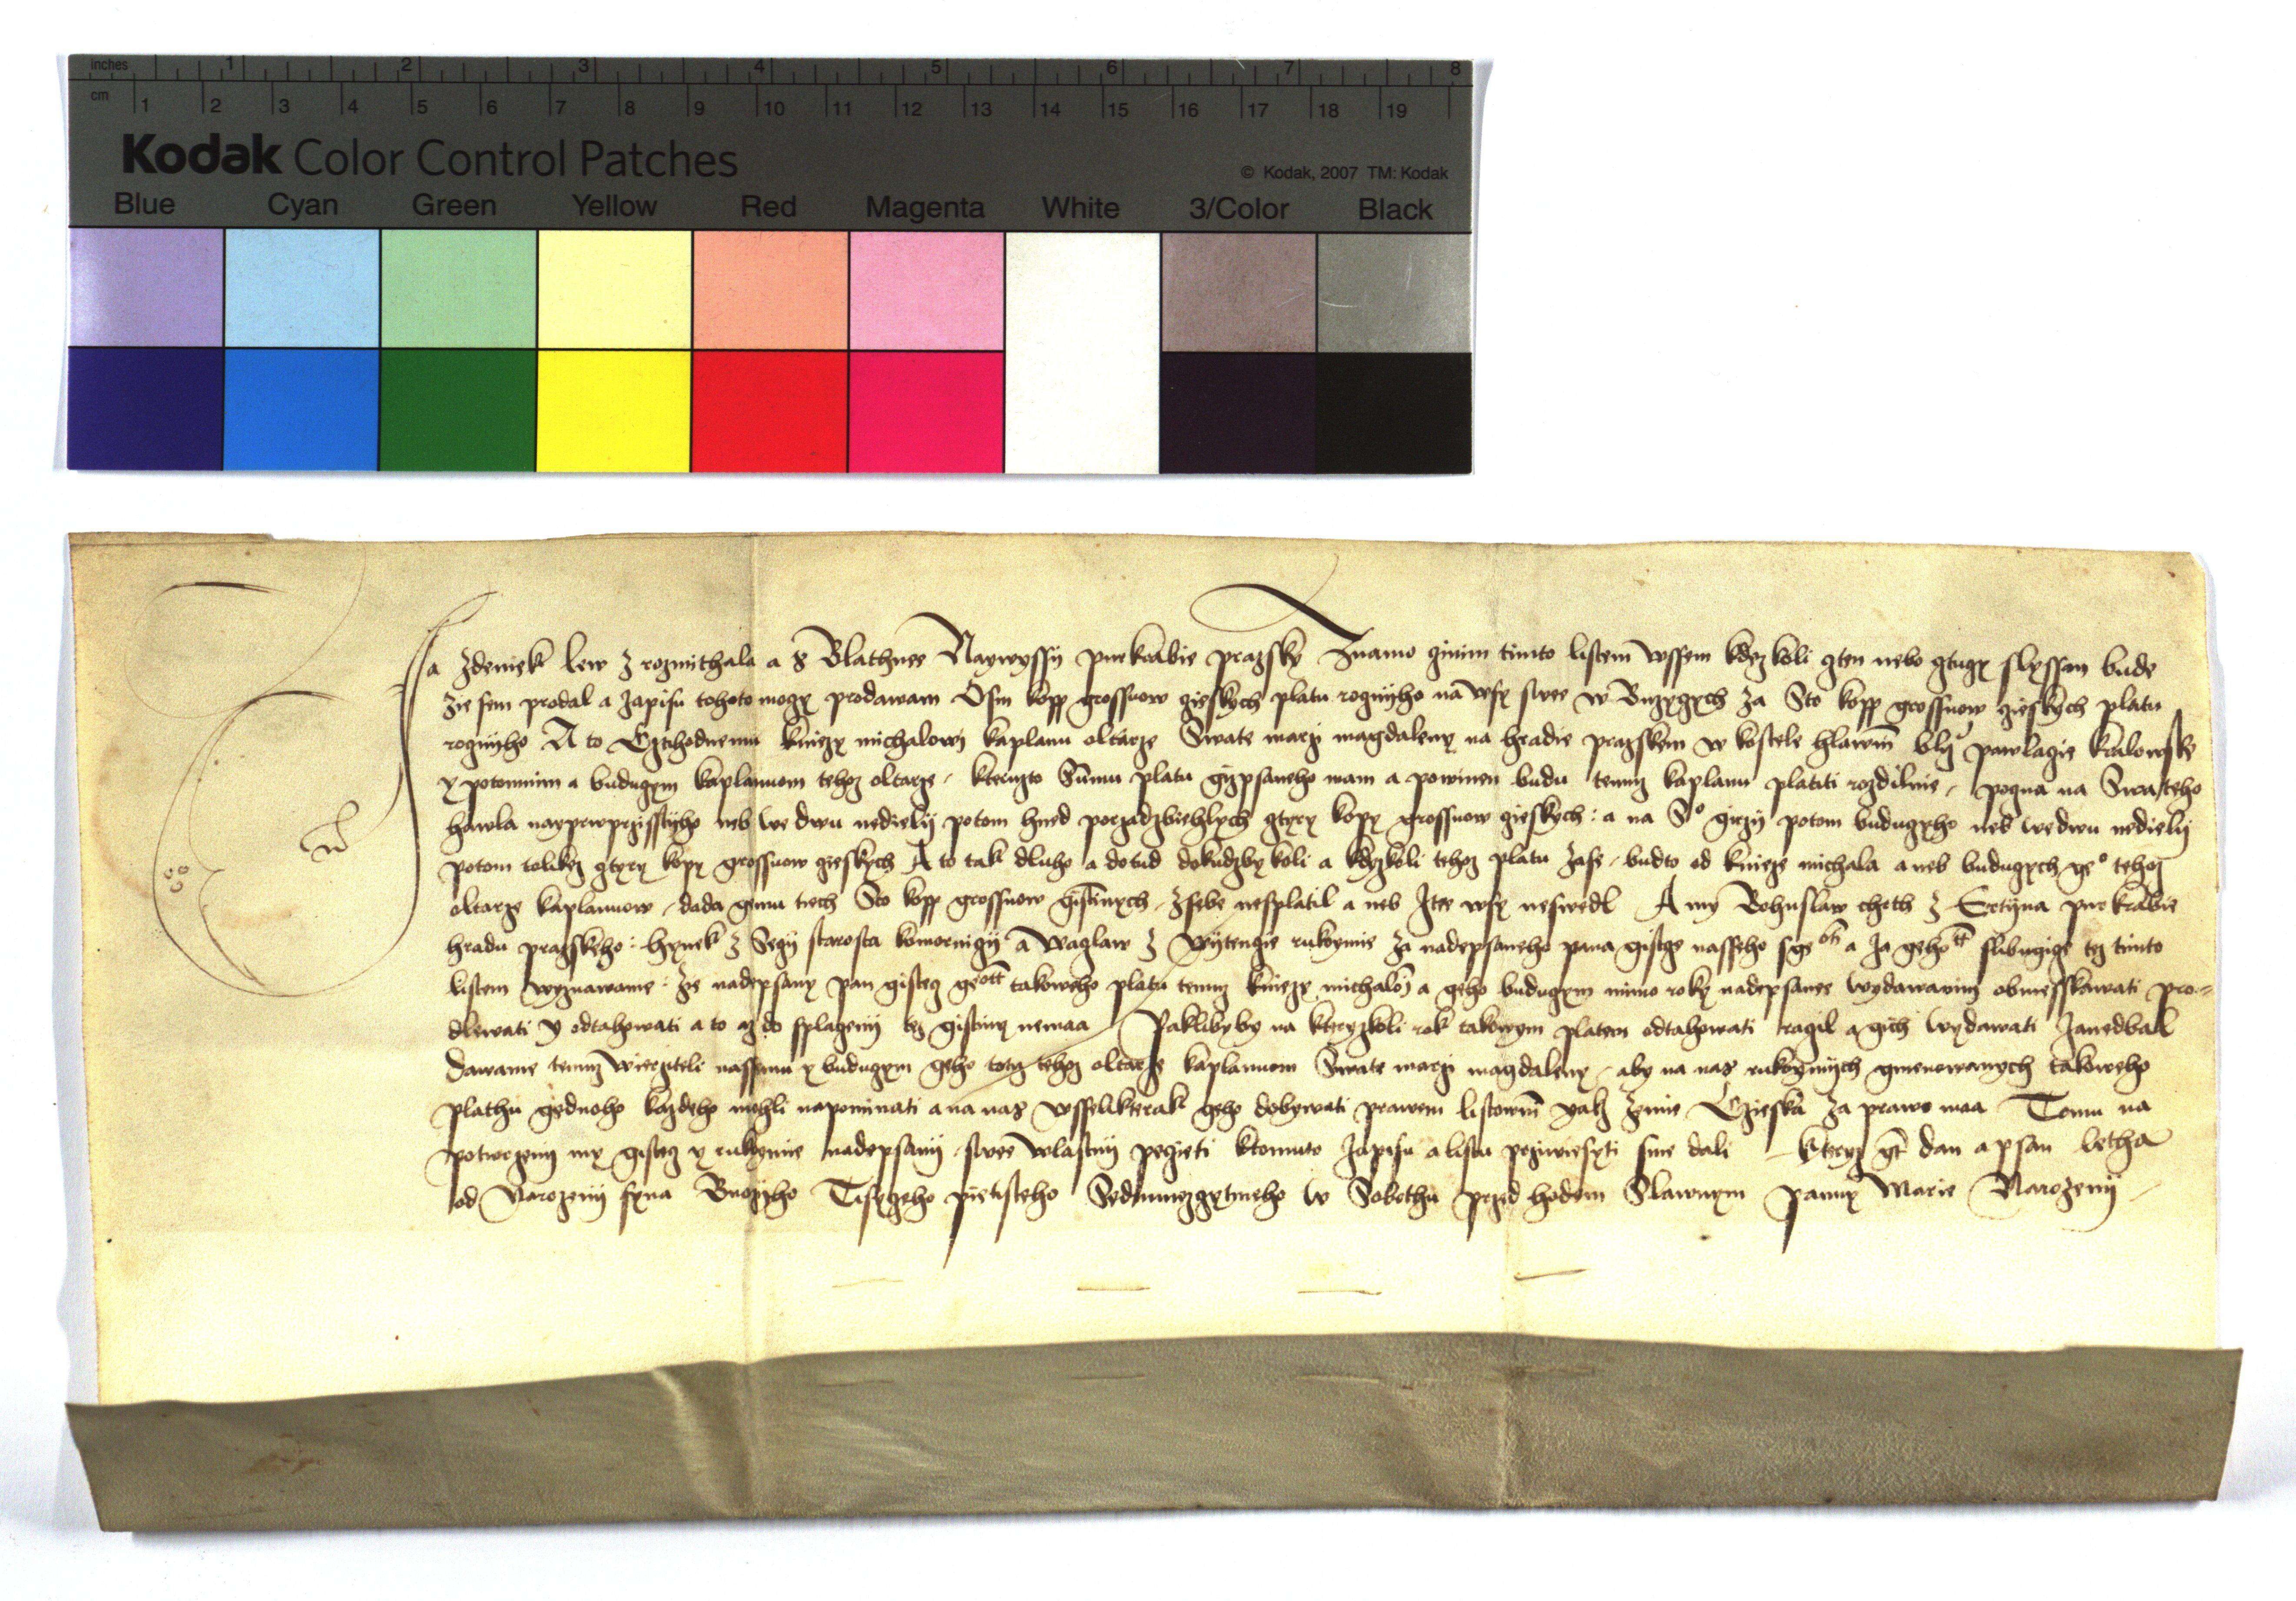 inches 1 2 3 4 5 6 7 8
cm 1 2 3 4 5 6 7 8 9 10 11 12 13 14 15 16 17 18 19
Kodak Color Control Patches
© Kodak, 2007 TM: Kodak
Blue Cyan Green Yellow Red Magenta White 3/Color Black
Ja Zdeniek lew z rozmithala a s Blathnee Naywyssij purkrabie prazsky Znamo czinim timto listem wssem kdez koli cten nebo cztucy slyssan bude
zie sem prodal a zapisu tohoto mocy prodawam Osm kopp grossuow czieskych platu rocznijho na wsy swee w Buzycych za Sto kopp grossuow czieskych platu
rocznijho A to Cztihodnemu kniezy michalowi kaplanu oltarze Swate marzi magdaleny na hradie prazskem w kostele hlawnim bliz pawlacie kralowske
y potomnim a buducym kaplanuom tehoz oltarze kteruzto Summu platu psaneho mam a powinen budu temuz kaplanu platiti rozdilnie poczna na Swateho
hawla nayprwprzisstijho neb we dwu nedielij potom hned porzadzbiehlych cztyry kopy grossuow czieskych : a na So girzij potom buducyho neb we dwu nedielij
potom tolikez cztyry kopy grossuow czieskych A to tak dluho a dotud dokudzby koli a kdyzkoli tehoz platu zase budto od knieze michala a neb buducych geo tehoz
oltarze kaplanuow dada gemu tiech Sto kopp grossuow gistinnych zsebe nesplatil a neb Itee wsy neswedl A my Bohuslaw z purkrabie
hradu prazskeho : hynek z starosta komornicij a Waclaw z rukoymie za nadepsaneho pana gistce nasseho a za geho slibugige tez timto
listem wyznawame : ze nadepsany pan gistecz takoweho platu temuz kniezy michalowi a geho buducym mimo roky nadepsanee wydawanim obmesskawati pro=
dlewati y odtahowati a to az do splacenij tez gistiny nemaa Paklizby by na kteryzkoli rok takowym platem odtahowati raczil a gich wydawati zanedbal
dawame temuz wierziteli nassemu y buducym geho tehoz oltarze kaplanuom Swate marzi magdaleny aby na nas rukoymijch gmenowanych takoweho
plathu gednoho kazdeho mohli napominati a na nas wsselikterak geho dobywati prawem listownim yakz zemie Czieska za prawo maa Tomu na
potwrzenij my gistecz y rukoymie nadepsanij swee wlastnij peczieti ktomuto zapisu a listu prziwiesyti sme dali kteryz gt dan a psan letha
od Narozenij syna Buozyho Tisyczeho pietisteho Sedmmezcytmeho w Sobothu przed hodem Slawnym panny Marie Narozenij